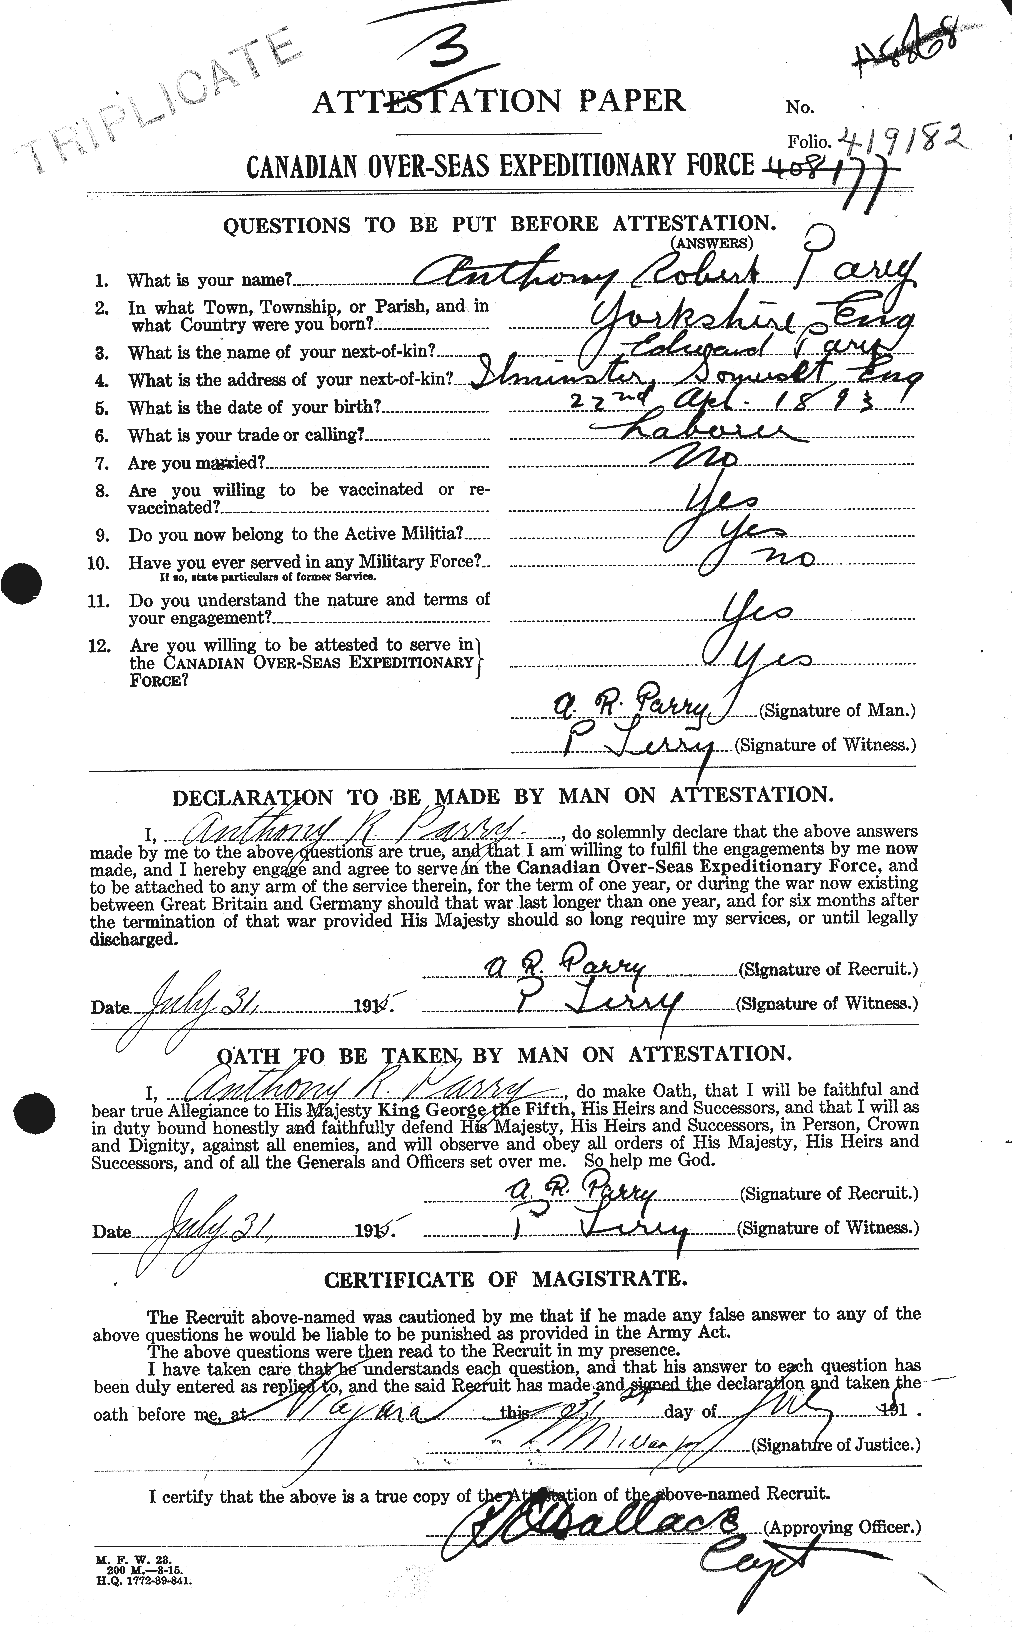 TRIPLICATE
3
ATTESTATION PAPER
No.
Folio. 419182
CANADIAN OVER-SEAS EXPEDITIONARY FORCE 408177
QUESTIONS TO BE PUT BEFORE ATTESTATION.
(ANSWERS)
1. What is your name? Anthony Robert Parry
2. In what Town, Township, or Parish, and in
what Country were you born? Yorkshire, Eng
3. What is the name of your next-of-kin? Edward Parry
4. What is the address of your next-of-kin? Ilminster, Somerset, Eng
5. What is the date of your birth? 22nd Apl. 1893
6. What is your trade or calling? Laborer
7. Are you married? No
8. Are you willing to be vaccinated or re-
vaccinated? Yes
9. Do you now belong to the Active Militia? Yes
10. Have you ever served in any Military Force? no
If so, state particulars of former Service.
11. Do you understand the nature and terms of
your engagement? Yes
12. Are you willing to be attested to serve in
the CANADIAN OVER-SEAS EXPEDITIONARY Yes
FORCE?
A. R. Parry (Signature of Man.)
P Terry (Signature of Witness.)
DECLARATION TO BE MADE BY MAN ON ATTESTATION.
I, Anthony R Parry, do solemnly declare that the above answers
made by me to the above questions are true, and that I am willing to fulfil the engagements by me now
made, and I hereby engage and agree to serve in the Canadian Over-Seas Expeditionary Force, and
to be attached to any arm of the service therein, for the term of one year, or during the war now existing
between Great Britain and Germany should that war last longer than one year, and for six months after
the termination of that war provided His Majesty should so long require my services, or until legally
discharged.
A R. Parry (Signature of Recruit.)
Date July 31, 1915. P Terry (Signature of Witness.)
OATH TO BE TAKEN BY MAN ON ATTESTATION.
I, Anthony R. Parry, do make Oath, that I will be faithful and
bear true Allegiance to His Majesty King George the Fifth, His Heirs and Successors, and that I will as
in duty bound honestly and faithfully defend His Majesty, His Heirs and Successors, in Person, Crown
and Dignity, against all enemies, and will observe and obey all orders of His Majesty, His Heirs and
Successors, and of all the Generals and Officers set over me. So help me God.
A. R. Parry (Signature of Recruit.)
Date July 31, 1915. P Terry (Signature of Witness.)
CERTIFICATE OF MAGISTRATE.
The Recruit above-named was cautioned by me that if he made any false answer to any of the
above questions he would be liable to be punished as provided in the Army Act.
The above questions were then read to the Recruit in my presence.
I have taken care that he understands each question, and that his answer to each question has
been duly entered as replied to, and the said Recruit has made and signed the declaration and taken the
oath before me, at Niagara this 31st day of July 191 .
(Signature of Justice.)
I certify that the above is a true copy of the Attestation of the above-named Recruit.
Wallace (Approving Officer.)
Capt
M. F. W. 23.
200 M.—3-15.
H.Q. 1772-39-841.